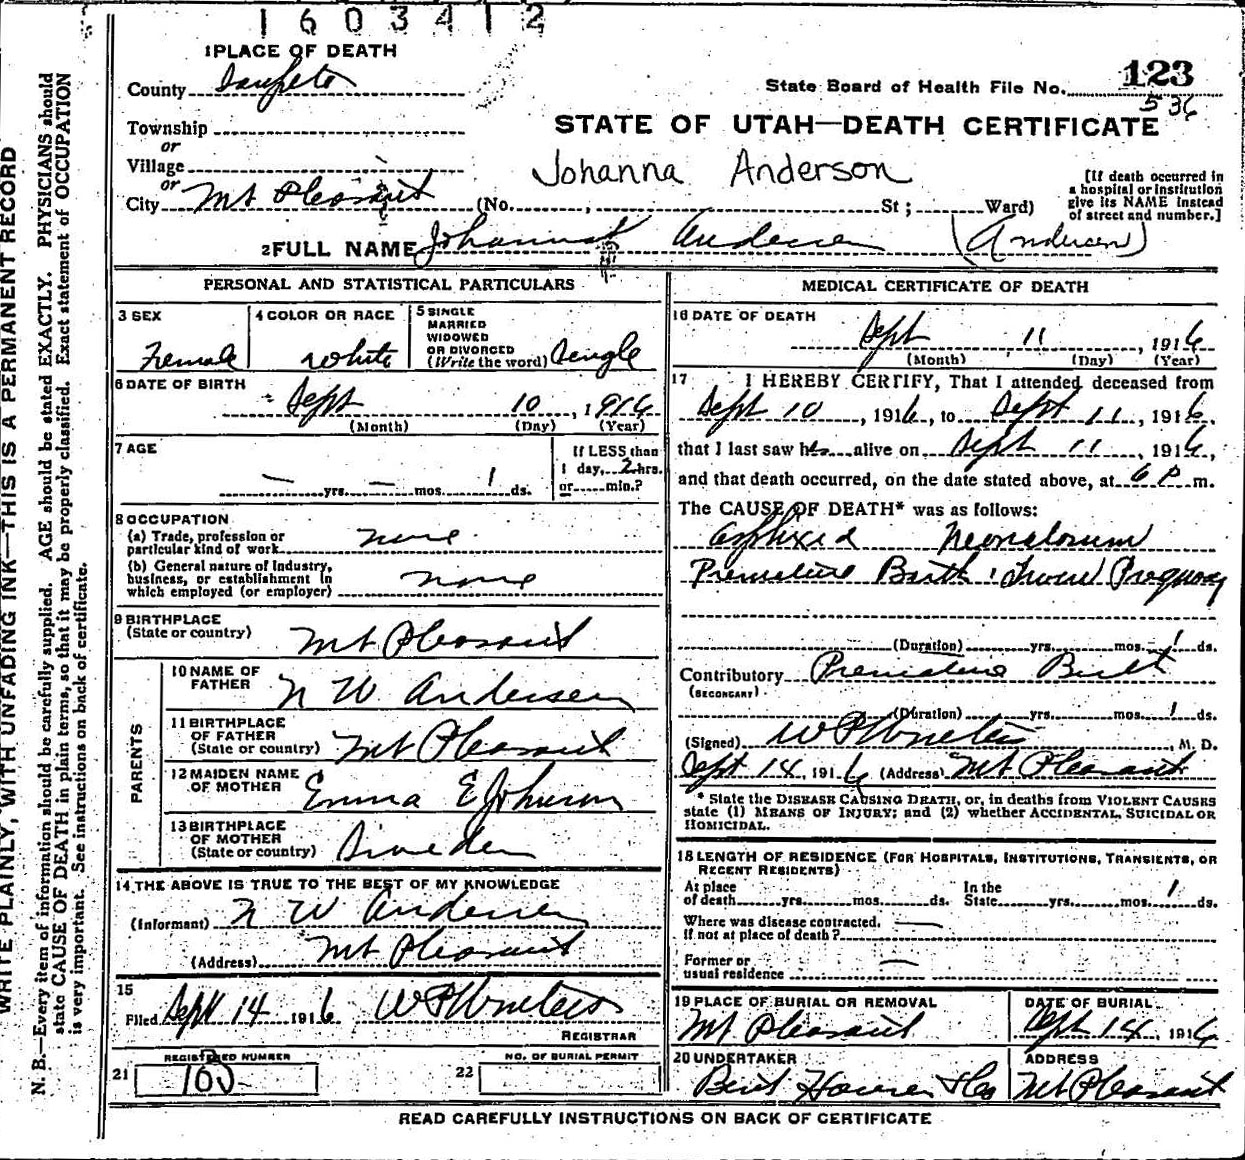 1603412
1 PLACE OF DEATH
County Sanpete
State Board of Health File No. 123
536
Township
or
Village
or
City Mt Pleasant (No. , St ; Ward)
STATE OF UTAH—DEATH CERTIFICATE
Johanna Anderson
[If death occurred in
a hospital or institution
give its NAME instead
of street and number.]
2 FULL NAME Johannah Andersen (Andersen)
PERSONAL AND STATISTICAL PARTICULARS
3 SEX
Female
4 COLOR OR RACE
white
5 SINGLE
MARRIED
WIDOWED
OR DIVORCED
(Write the word) Single
6 DATE OF BIRTH
Sept 10, 1916
(Month) (Day) (Year)
7 AGE
— yrs. — mos. 1 ds.
If LESS than
1 day, 2 hrs.
or min.?
8 OCCUPATION
(a) Trade, profession or
particular kind of work none
(b) General nature of industry,
business, or establishment in
which employed (or employer) none
9 BIRTHPLACE
(State or country) Mt Pleasant
PARENTS
10 NAME OF
FATHER N W Andersen
11 BIRTHPLACE
OF FATHER
(State or country) Mt Pleasant
12 MAIDEN NAME
OF MOTHER Emma E Johnson
13 BIRTHPLACE
OF MOTHER
(State or country) Sweden
14 THE ABOVE IS TRUE TO THE BEST OF MY KNOWLEDGE
(Informant) N W Andersen
(Address) Mt Pleasant
15
Filed Sept 14 1916 W P Winters
REGISTRAR
REGISTERED NUMBER
21 103
NO. OF BURIAL PERMIT
22
MEDICAL CERTIFICATE OF DEATH
16 DATE OF DEATH
Sept 11, 1916
(Month) (Day) (Year)
17 I HEREBY CERTIFY, That I attended deceased from
Sept 10, 1916, to Sept 11, 1916,
that I last saw her alive on Sept 11, 1916,
and that death occurred, on the date stated above, at 6 P m.
The CAUSE OF DEATH* was as follows:
Asphixia Neonatorum
Premature Birth : Twin Pregnancy
(Duration) yrs. mos. 1 ds.
Contributory Premature Birth
(SECONDARY)
(Duration) yrs. mos. 1 ds.
(Signed) W P Winters, M. D.
Sept 14, 1916 (Address) Mt Pleasant
* State the DISEASE CAUSING DEATH, or, in deaths from VIOLENT CAUSES
state (1) MEANS OF INJURY; and (2) whether ACCIDENTAL, SUICIDAL OR
HOMICIDAL.
18 LENGTH OF RESIDENCE (FOR HOSPITALS, INSTITUTIONS, TRANSIENTS, OR
RECENT RESIDENTS)
At place
of death yrs. mos. ds.
In the
State yrs. mos. 1 ds.
Where was disease contracted,
If not at place of death? —
Former or
usual residence —
19 PLACE OF BURIAL OR REMOVAL
Mt Pleasant
DATE OF BURIAL
Sept 14, 1916
20 UNDERTAKER
ADDRESS
Mt Pleasant
READ CAREFULLY INSTRUCTIONS ON BACK OF CERTIFICATE
WRITE PLAINLY, WITH UNFADING INK—THIS IS A PERMANENT RECORD
N. B.—Every item of information should be carefully supplied. AGE should be stated EXACTLY. PHYSICIANS should
state CAUSE OF DEATH in plain terms, so that it may be properly classified. Exact statement of OCCUPATION
is very important. See instructions on back of certificate.